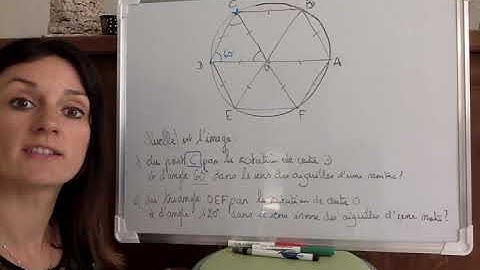 C B
60°
D O A
E F
Quelle est l'image
1) du point C par la rotation de centre D
et d'angle 60° dans le sens des aiguilles d'une montre?
2) du triangle OEF par la rotation de centre O
et d'angle 120° dans le sens inverse des aiguilles d'une montre?